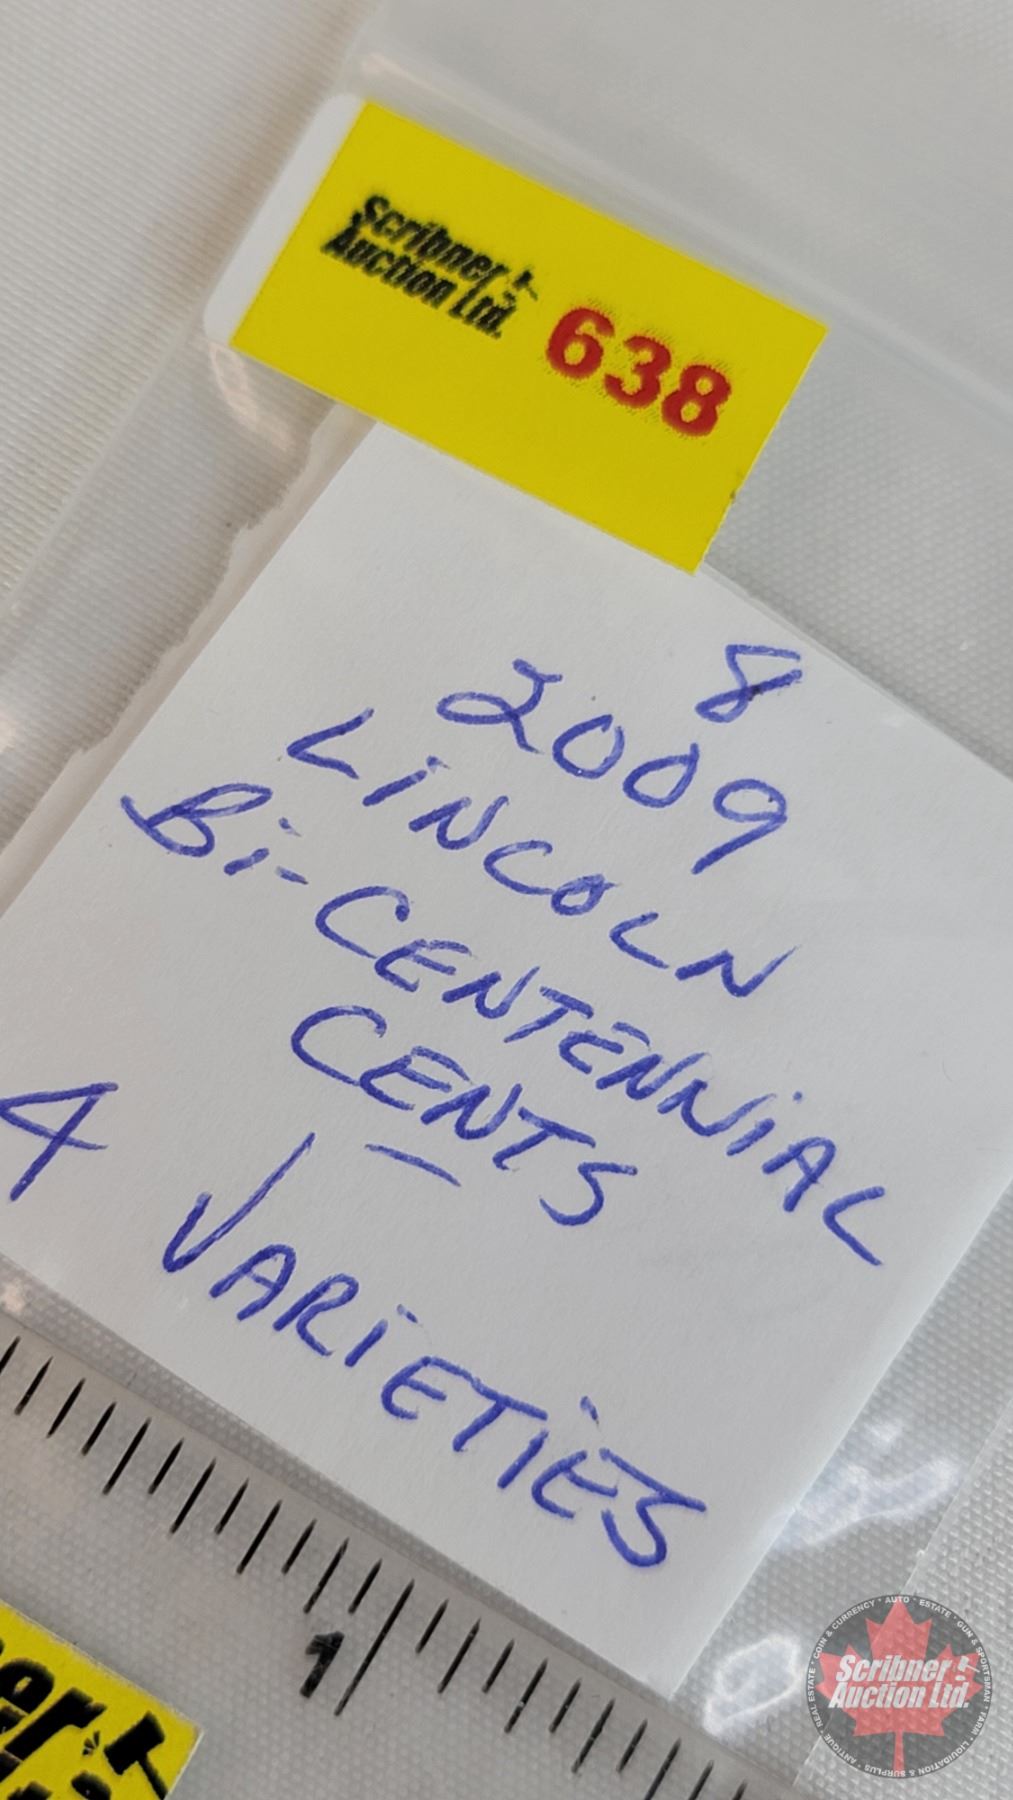 Scribner
Auction Ltd.
638
8
2009
LiNCOLN
Bi-CENTENNiAL
CENTS
4 VARiETiES
1
COIN & CURRENCY · AUTO · ESTATE · GUN & SPORTSMAN · FARM · LIQUIDATION & SURPLUS · ANTIQUE · REAL ESTATE ·
Scribner
Auction Ltd.